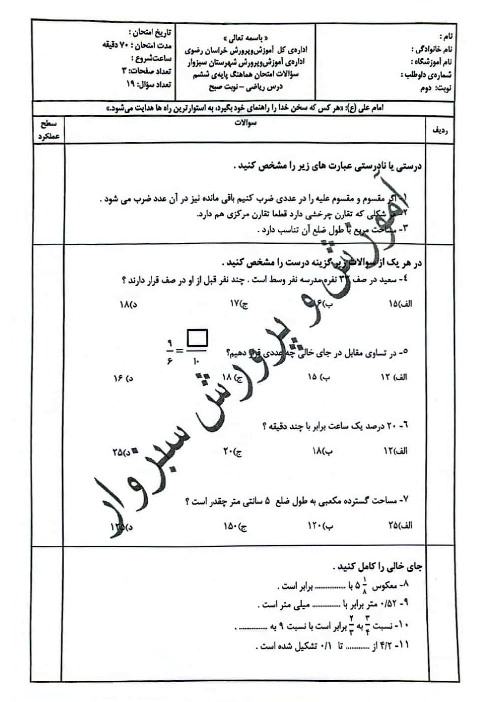 نام :
نام خانوادگی :
نام آموزشگاه :
شماره‌ی داوطلب :
نوبت: دوم
« باسمه تعالی »
اداره‌ی کل آموزش‌وپرورش خراسان رضوی
اداره‌ی آموزش‌وپرورش شهرستان سبزوار
سؤالات امتحان هماهنگ پایه‌ی ششم
درس ریاضی – نوبت صبح
تاریخ امتحان :
مدت امتحان : ۷۰ دقیقه
ساعت‌شروع :
تعداد صفحات: ۳
تعداد سؤال: ۱۹
امام علی (ع): «هر کس که سخن خدا را راهنمای خود بگیرد، به استوارترین راه ها هدایت می‌شود.»
ردیف
سوالات
سطح عملکرد
درستی یا نادرستی عبارت های زیر را مشخص کنید .
۱- اگر مقسوم و مقسوم علیه را در عددی ضرب کنیم باقی مانده نیز در آن عدد ضرب می شود .
۲- شکلی که تقارن چرخشی دارد قطعا تقارن مرکزی هم دارد.
۳- مساحت مربع با طول ضلع آن تناسب دارد .
در هر یک از سوالات زیر گزینه درست را مشخص کنید .
۴- سعید در صف ۳۳ نفره مدرسه نفر وسط است . چند نفر قبل از او در صف قرار دارند ؟
الف)۱۵ ب)۱۶ ج)۱۷ د)۱۸
۵- در تساوی مقابل در جای خالی چه عددی قرار دهیم؟ ۹/۶ = □/۱۰
الف) ۱۲ ب) ۱۵ ج) ۱۸ د) ۱۶
۶- ۲۰ درصد یک ساعت برابر با چند دقیقه ؟
الف)۱۲ ب)۱۸ ج)۲۰ د)۲۵
۷- مساحت گسترده مکعبی به طول ضلع ۵ سانتی متر چقدر است ؟
الف)۲۵ ب)۱۲۰ ج)۱۵۰ د)۱۲۵
جای خالی را کامل کنید .
۸- معکوس ۵ ۱/۸ با .............. برابر است .
۹- ۰/۵۲ متر برابر با ............ میلی متر است .
۱۰- نسبت ۳/۴ به ۲/۳ برابر است با نسبت ۹ به ............. .
۱۱- ۴/۲ از ........... تا ۰/۱ تشکیل شده است .
آموزش و پرورش سبزوار